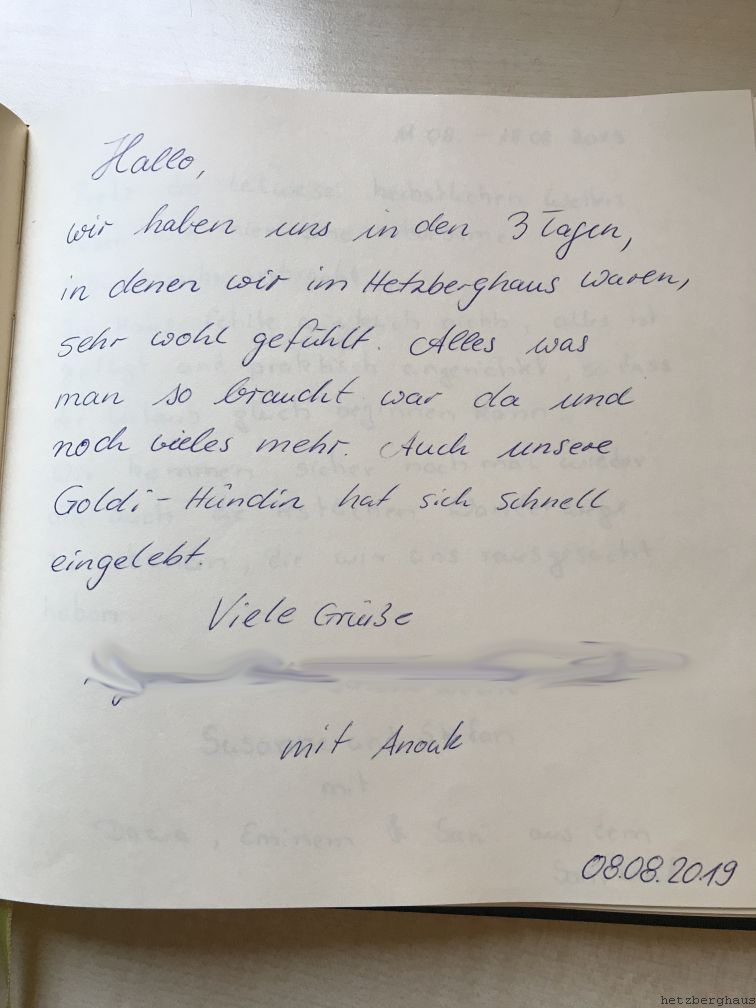 Hallo,
wir haben uns in den 3 Tagen,
in denen wir im Hetzberghaus waren,
sehr wohl gefühlt. Alles was
man so braucht war da und
noch vieles mehr. Auch unsere
Goldi-Hündin hat sich schnell
eingelebt.
Viele Grüße
mit Anouk
08.08.2019
hetzberghaus